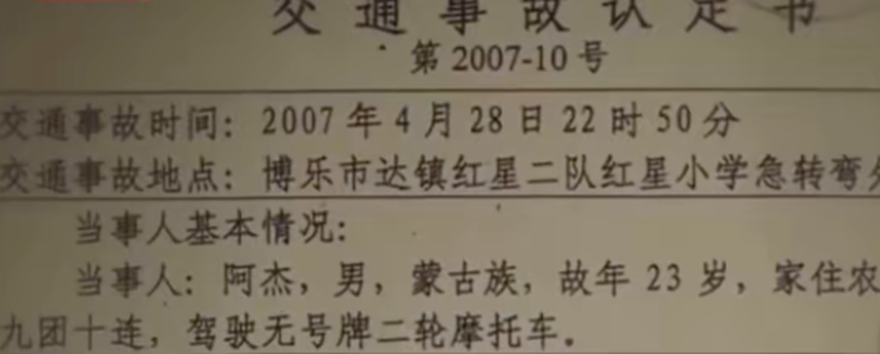 交通事故认定书
第 2007-10 号
交通事故时间：2007 年 4 月 28 日 22 时 50 分
交通事故地点：博乐市达镇红星二队红星小学急转弯处
当事人基本情况：
当事人：阿杰，男，蒙古族，故年 23 岁，家住农
九团十连，驾驶无号牌二轮摩托车。